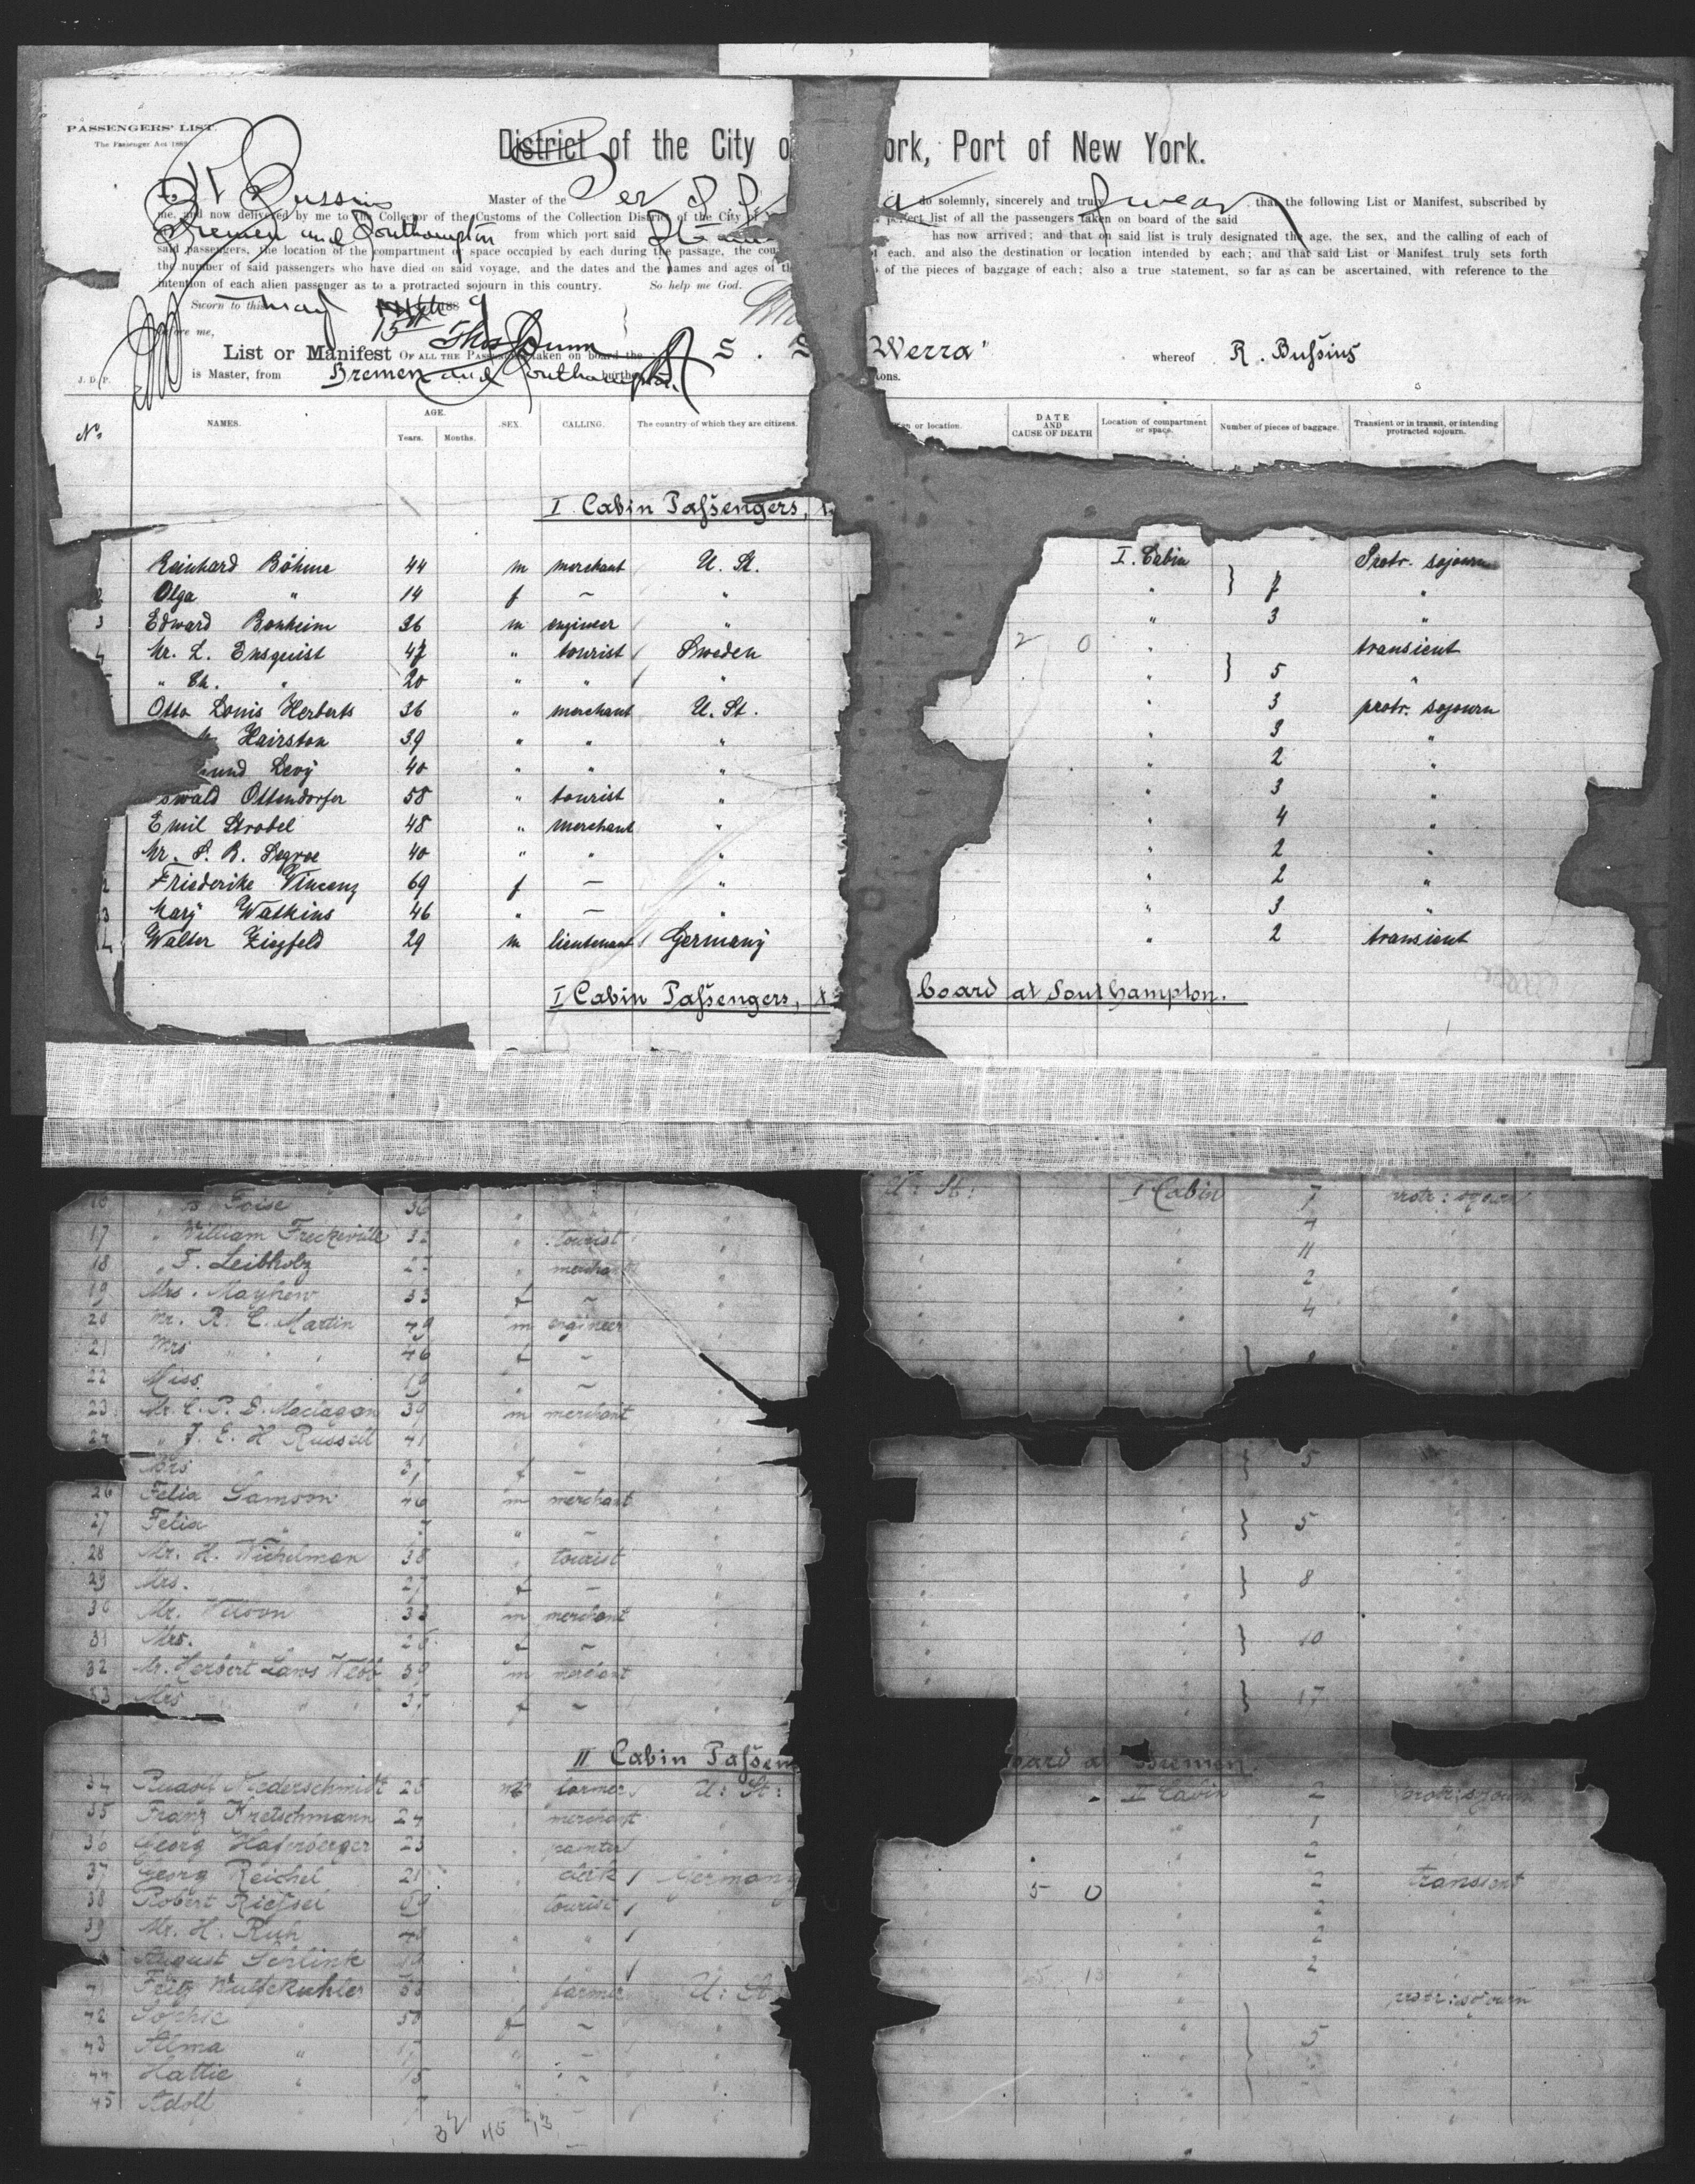 PASSENGERS' LIST.
The Passenger Act 1882
District of the City o ork, Port of New York.
I, R Bussius Master of the do solemnly, sincerely and truly swear that the following List or Manifest, subscribed by
me, and now delivered by me to the Collector of the Customs of the Collection District of the City of perfect list of all the passengers taken on board of the said
Bremen and Southampton from which port said has now arrived; and that on said list is truly designated the age, the sex, and the calling of each of
said passengers, the location of the compartment or space occupied by each during the passage, the cou of each, and also the destination or location intended by each; and that said List or Manifest truly sets forth
the number of said passengers who have died on said voyage, and the dates and the names and ages of th of the pieces of baggage of each; also a true statement, so far as can be ascertained, with reference to the
intention of each alien passenger as to a protracted sojourn in this country. So help me God.
Sworn to this May 15th 1889
before me, Thos Dunn
List or Manifest OF ALL THE PASSENGERS taken on board the S. S Werra" whereof R. Bußius
is Master, from Bremen and Southampton burthen tons.
J. D. P.
No. NAMES. AGE. Years. Months. SEX. CALLING. The country of which they are citizens. or location. DATE AND CAUSE OF DEATH Location of compartment or space. Number of pieces of baggage. Transient or in transit, or intending protracted sojourn.
I Cabin Paßengers,
Reinhard Böhme 44 m merchant U. St. I. Cabin Protr. sojourn
2 Olga " 14 f ~ " " } 7 "
3 Edward Bonheim 36 m engineer " " 3 "
4 Mr. L. Enequist 47 " tourist Sweden 2 0 " transient
" Ch. " 20 " " " " } 5 "
Otto Louis Herberts 36 " merchant U. St. " 3 protr. sojourn
Hairston 39 " " " " 3 "
und Levy 40 " " " " 2 "
swald Ottendorfer 58 " tourist " " 3 "
Emil Strobel 48 " merchant " " 4 "
Mr. S. B. Segroe 40 " " " " 2 "
2 Friederike Vincenz 69 f — " " 2 "
3 Mary Watkins 46 " — " " 3 "
4 Walter Ziegfeld 29 m lieutenant Germany " 2 transient
I Cabin Paßengers, board at Southampton.
16 " Foise 36 " " " U: St: I Cabin 7 protr: sojourn
17 " William Freckeville " tourist " " 4 "
18 " F. Leibholz " merchant " " 11
19 Mrs. Mayhew 33 f ~ " " 2 "
20 Mr. R. C. Martin 49 m engineer " " 4 "
21 Mrs " " 46 f ~ " " }
22 Miss " " 19 " ~ "
23 Mr. C. P. D. Maclagan 39 m merchant "
24 " J. E. H. Russell 41 " "
Mrs 37 f ~ } 5 "
26 Felix Samson 46 m merchant
27 Felix " 7 " ~ } 5 "
28 Mr. H. Wichelman 38 " tourist "
29 Mrs. 27 f ~ } 8 "
30 Mr. Wilson 33 m merchant
31 Mrs. " f ~ } 10 "
32 Mr. Herbert Laws Webb 39 m merchant
33 Mrs " " 37 f ~ } 17 "
II Cabin Paßen oard at Bremen.
34 Rudolf Niederschmidt 25 m farmer U: St: II Cabin 2 protr: sojourn
35 Franz Kretschmann 24 " merchant " " 1 "
36 Georg Haferberger 23 " painter " " 2 "
37 Georg Reichel 21 " clerk Germany " 2 transient
38 Robert Rießel 69 tourist " 5 0 " 2 "
39 Mr. H. Ruh " " " 2 "
August Schlink " 2 "
41 Fritz Wulfekuhler farmer U: St protr: sojourn
42 Sophie " 50 f ~ " } 5 "
43 Alma " 17 " ~ " "
44 Hattie " 15 " ~ " "
45 Adolf " 7 m ~ " "
32 45 13